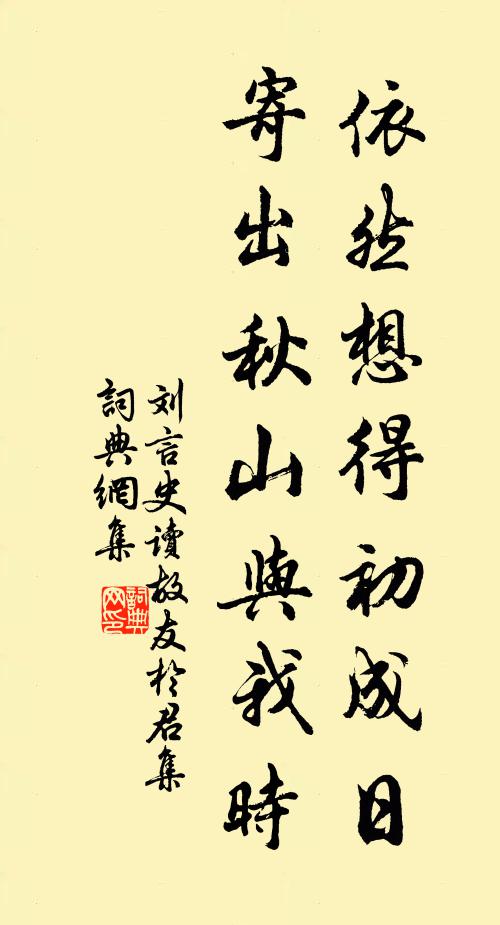 依然想得初成日
寄出秋山與我時
刘言史讀故友於君集
詞典網集
詞典网印